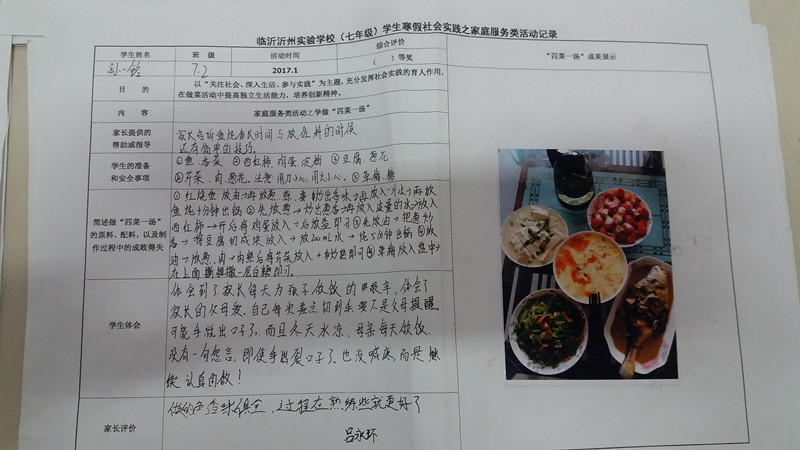 临沂沂州实验学校（七年级）学生寒假社会实践之家庭服务类活动记录
学生姓名 班 级 活动时间 综合评价 "四菜一汤"成果展示
7.2 2017.1 （ ）等奖
目 的
以"关注社会、深入生活、参与实践"为主题，充分发挥社会实践的育人作用，
在做菜活动中提高独立生活能力，培养创新精神。
内 容 家庭服务类活动之学做"四菜一汤"
家长提供的
帮助或指导
家长告诉鱼炖有长时间与放佐料的时候
还有简单的技巧。
学生的准备
和安全事项
①鱼、香菜 ②西红柿、鸡蛋、淀粉 ③豆腐、葱花
④芹菜、肉、葱花。注意：用刀小心，用火小心。⑤草莓、糖
简述做"四菜一汤"
的原料、配料，以及制
作过程中的成败得失
①红烧鱼 放油→再放葱、蒜、姜 炒出香味→再放入一勺水→再放
鱼炖十分钟出锅 ②先放葱→炒出葱香→再放入适量的水→放入
西红柿→开后将鸡蛋放入→后放盐即可 ③先放油→把葱炒
香→将豆腐切成块放入→放200mL水→炖5分钟出锅 ④放
油→放葱、肉→肉熟后将芹菜放入→ 炒熟即可 ⑤草莓放入盘中→
在上面 撒一层白糖即可。
学生体会
体会到了家长每天为孩子做饭的 艰辛，体会了
家长的父母爱，自己每次差点切到手 要不是父母提醒
可能手就出口子了，而且冬天水凉，母亲每天做饭，
没有一句怨言，即使手出裂口子了，也没喊疼，而是 继
续 认真的做！
家长评价
做的色香味俱全，过程在熟练些就更好了
吕永环